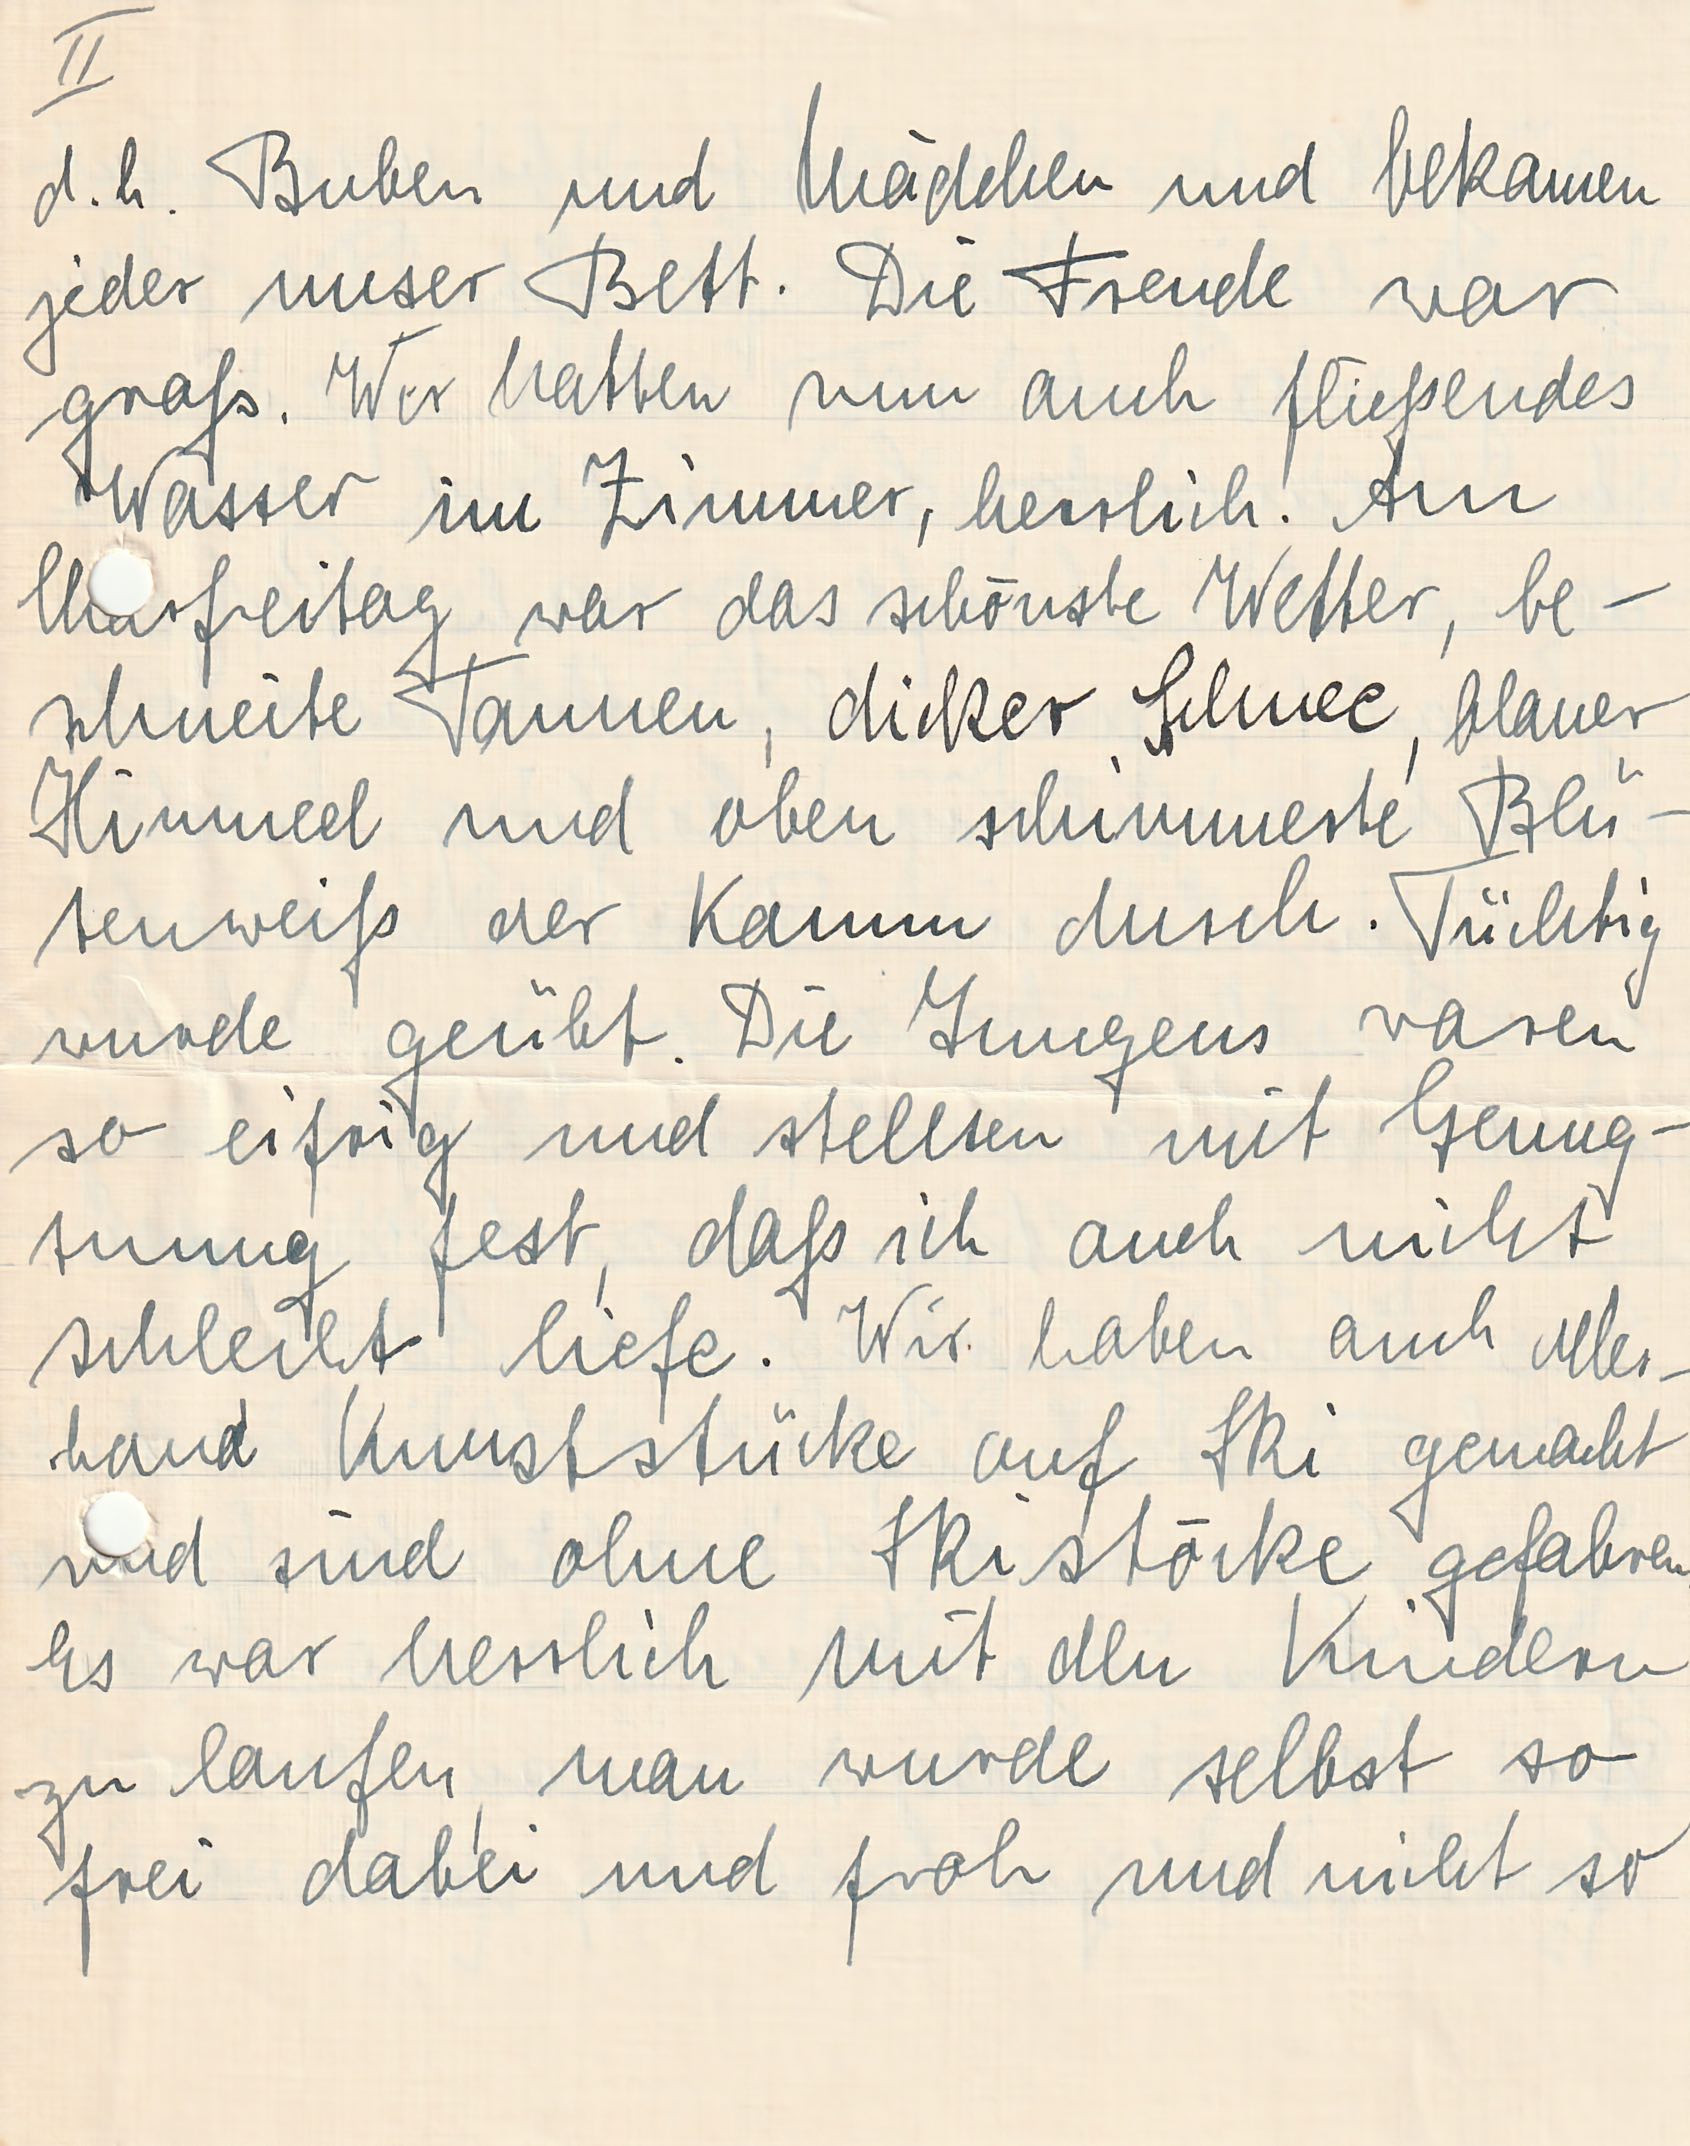 II
d.h. Buben und Mädchen und bekamen
jeder unser Bett. Die Freude war
groß. Wir hatten nun auch fließendes
Wasser im Zimmer, herrlich! Am
Charfreitag war das schönste Wetter, be-
schneite Tannen, dicker Schnee, blauer
Himmel und oben schimmerte Blü-
tenweiß der Kamm durch. Tüchtig
wurde geübt. Die Jungens waren
so eifrig und stellten mit Genug-
tuung fest, daß ich auch nicht
schlecht liefe. Wir haben auch aller-
hand Kunststücke auf Ski gemacht
und sind ohne Skistöcke gefahren.
Es war herrlich mit den Kindern
zu laufen, man wurde selbst so
frei dabei und froh und nicht so